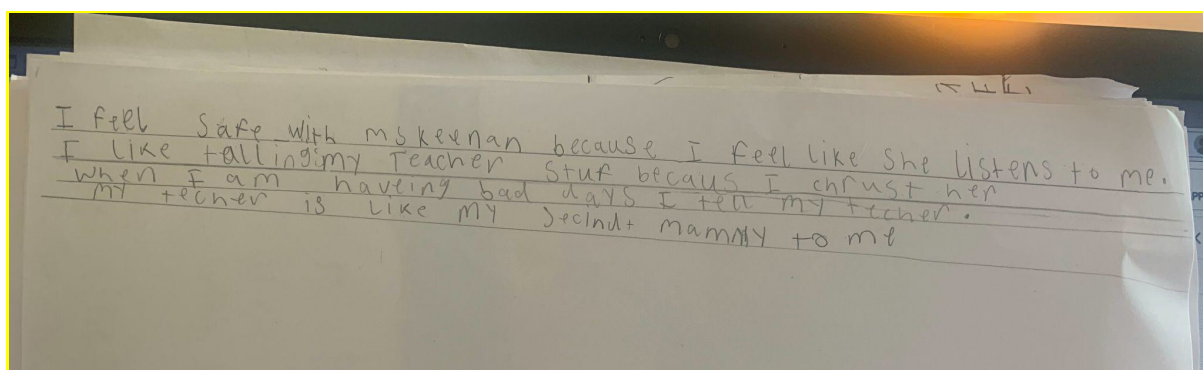 I feel safe with mskeenan because I feel like she listens to me.
I like tallingmy Teacher stuf becaus I chrust her
when I am haveing bad days I tell my techer.
my techer is like my secindt mammy to me